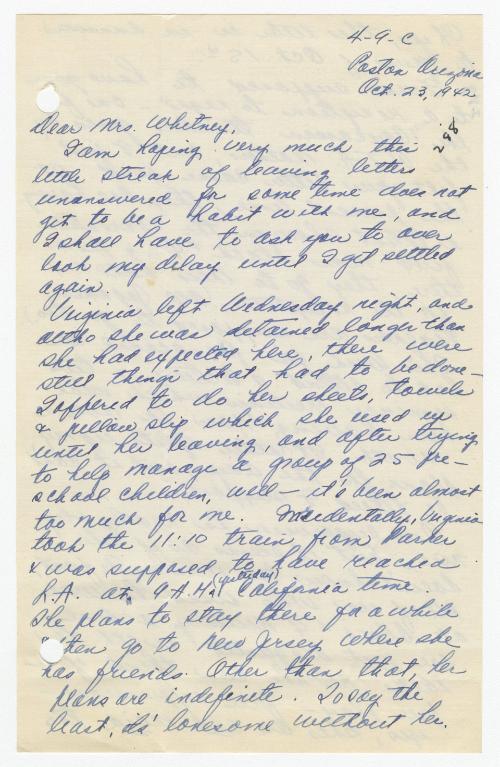 4-9-C
Poston Arizona
Oct. 23, 1942
298
Dear Mrs. Whitney,
I am hoping very much this
little streak of leaving letters
unanswered for some time does not
get to be a habit with me, and
I shall have to ask you to over
look my delay until I get settled
again.
Virginia left Wednesday night, and
altho she was detained longer than
she had expected here, there were
still things that had to be done—
I offered to do her sheets, towels
& pillow slip which she used up
until her leaving, and after trying
to help manage a group of 25 pre-
school children, well - it's been almost
too much for me. Incidentally, Virginia
took the 11:10 train from Parker
& was supposed to have reached
L.A. at 9 A.M. (yesterday) California time.
She plans to stay there for a while
then go to New Jrsey where she
has friends. Other than that, her
plans are indefinite. To say the
least, it's lonesome without her.